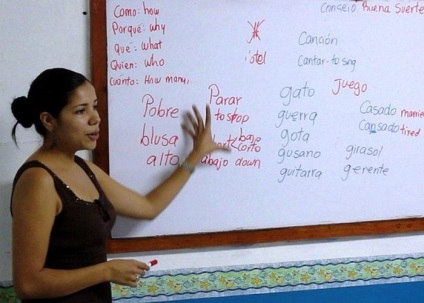 Como: how
Porqué: why
Que: what
Quien: who
Cuánto: How many,
Pobre
blusa
alta
Parar
to stop
bajo
corto
abajo down
Consejo Buena Suerte
Canción
Cantar-to sing
gato
guerra
gota
gusano
guitarra
Juego
Casado
Cansado tired
girasol
gerente